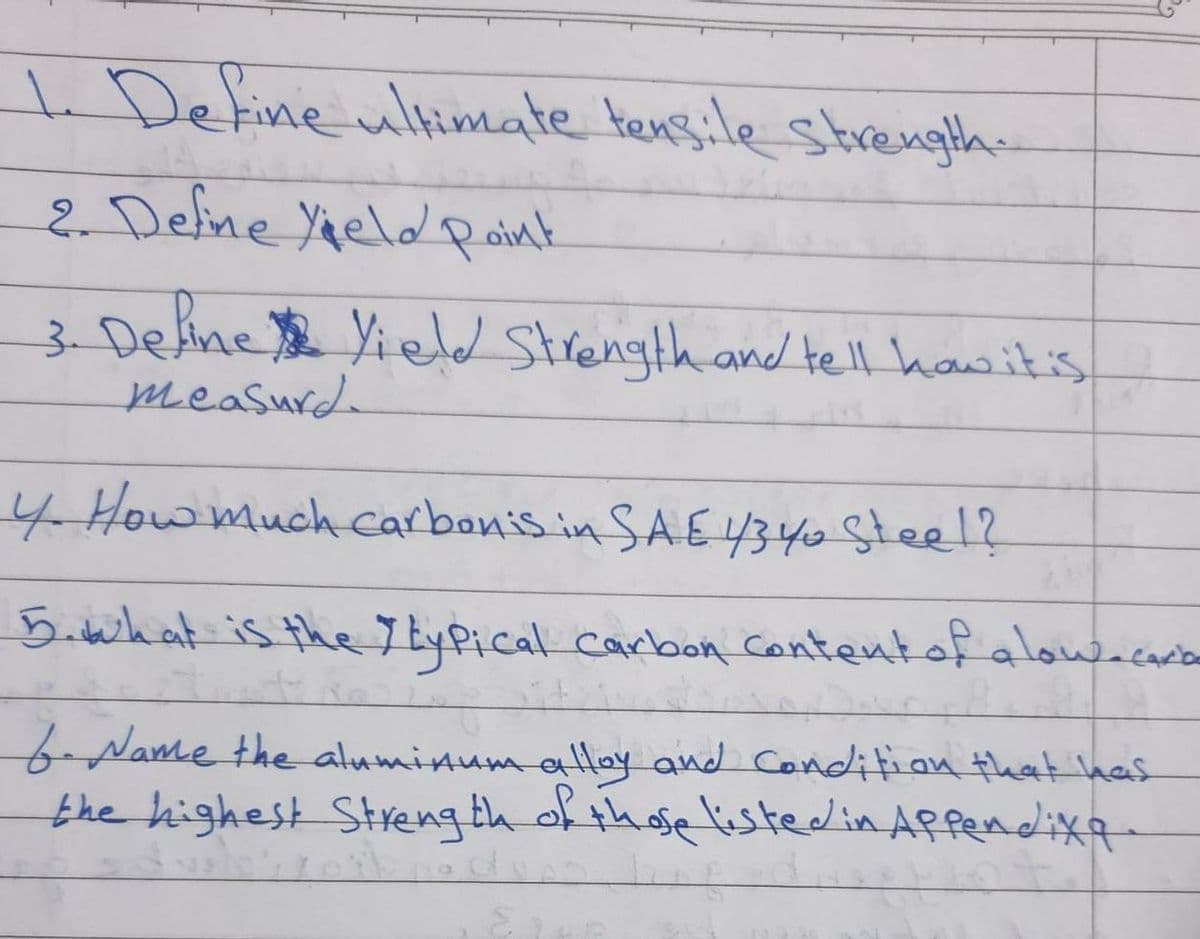 1. Define ultimate tensile strength.
2. Define Yield Point
3. Define Yield Strength and tell how it is
measurd.
4. How much carbon is in SAE 4340 Steel?
5. what is the typical carbon content of a low-carbo
6. Name the aluminum alloy and condition that has
the highest Strength of those listed in Appendix 9.